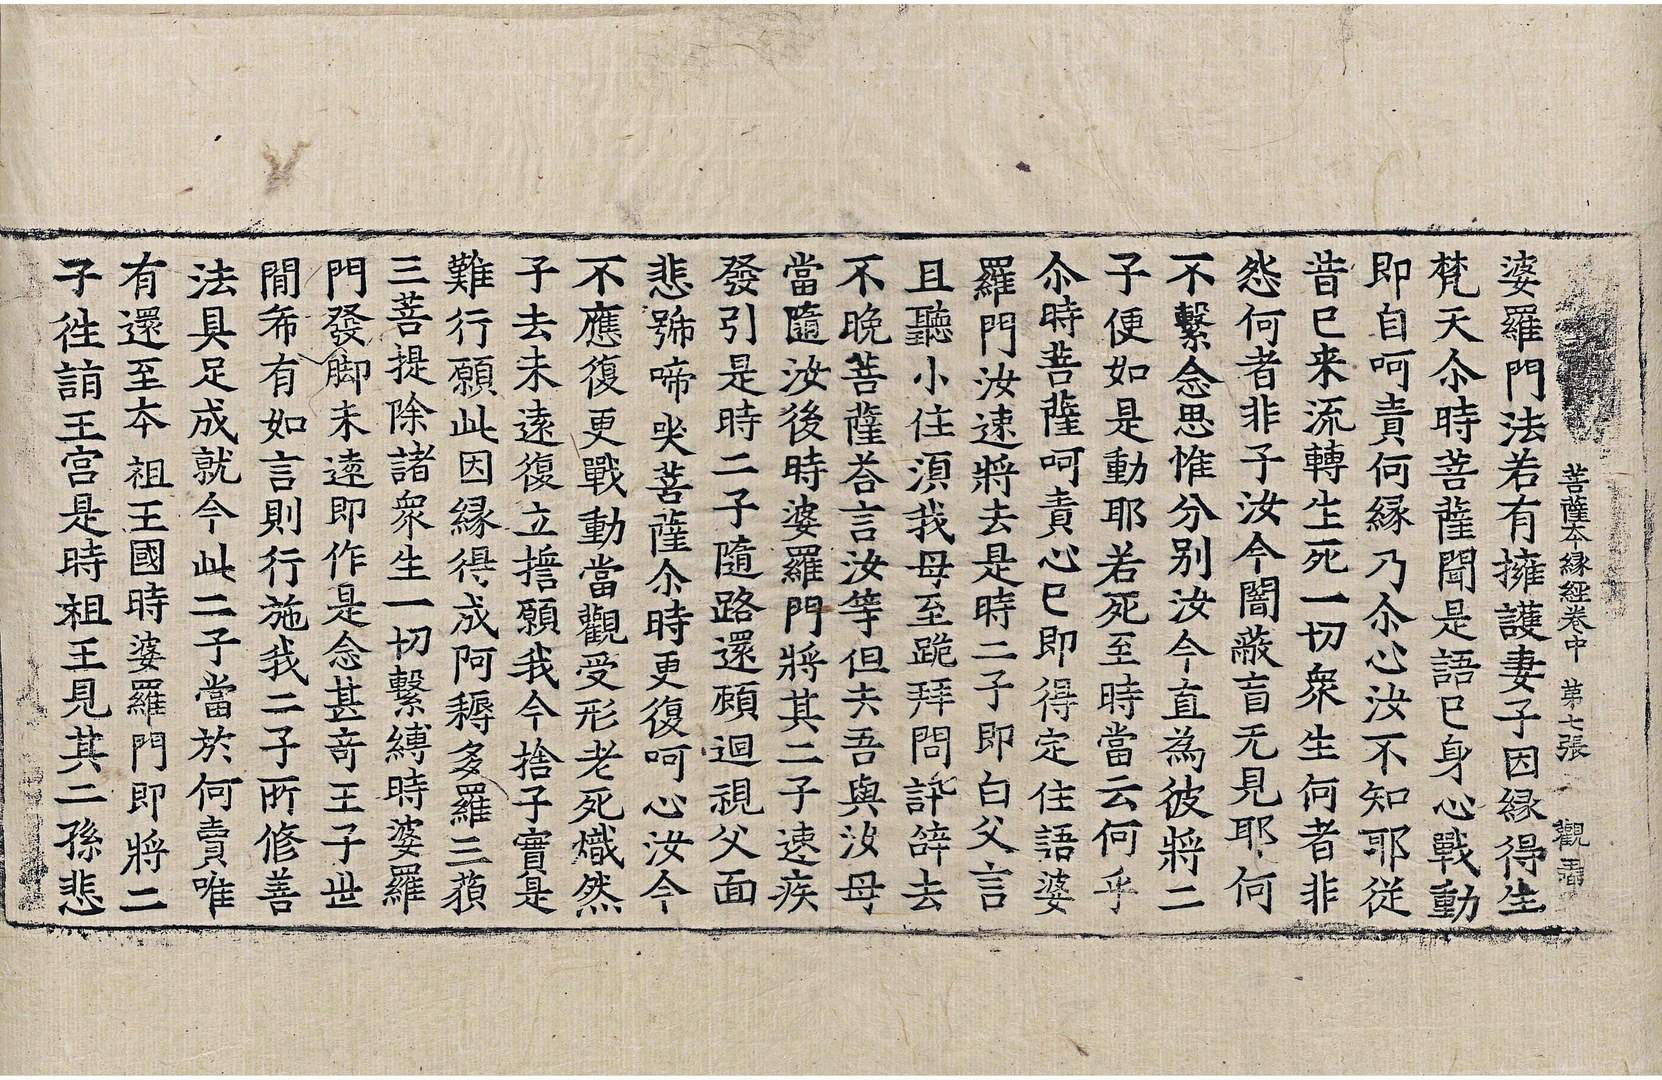 菩薩本緣経卷中 第七張 觀
婆羅門法若有擁護妻子因緣得生
梵天尒時菩薩聞是語已身心戰動
即自呵責何緣乃尒心汝不知耶從
昔已来流轉生死一切衆生何者非
怨何者非子汝今闇蔽盲无見耶何
不繫念思惟分別汝今直為彼將二
子便如是動耶若死至時當云何乎
尒時菩薩呵責心已即得定住語婆
羅門汝速將去是時二子即白父言
且聽小住湏我母至跪拜問訊辝去
不晚菩薩荅言汝等但去吾與汝母
當隨汝後時婆羅門將其二子速疾
發引是時二子隨路還顧迴視父面
悲號啼哭菩薩尒時更復呵心汝今
不應復更戰動當觀受形老死熾然
子去未遠復立誓願我今捨子實是
難行願此因緣得成阿耨多羅三藐
三菩提除諸衆生一切繫縛時婆羅
門發脚未遠即作是念甚竒王子世
間希有如言則行施我二子所修善
法具足成就今此二子當於何賣唯
有還至夲祖王國時婆羅門即將二
子徃詣王宫是時祖王見其二孫悲